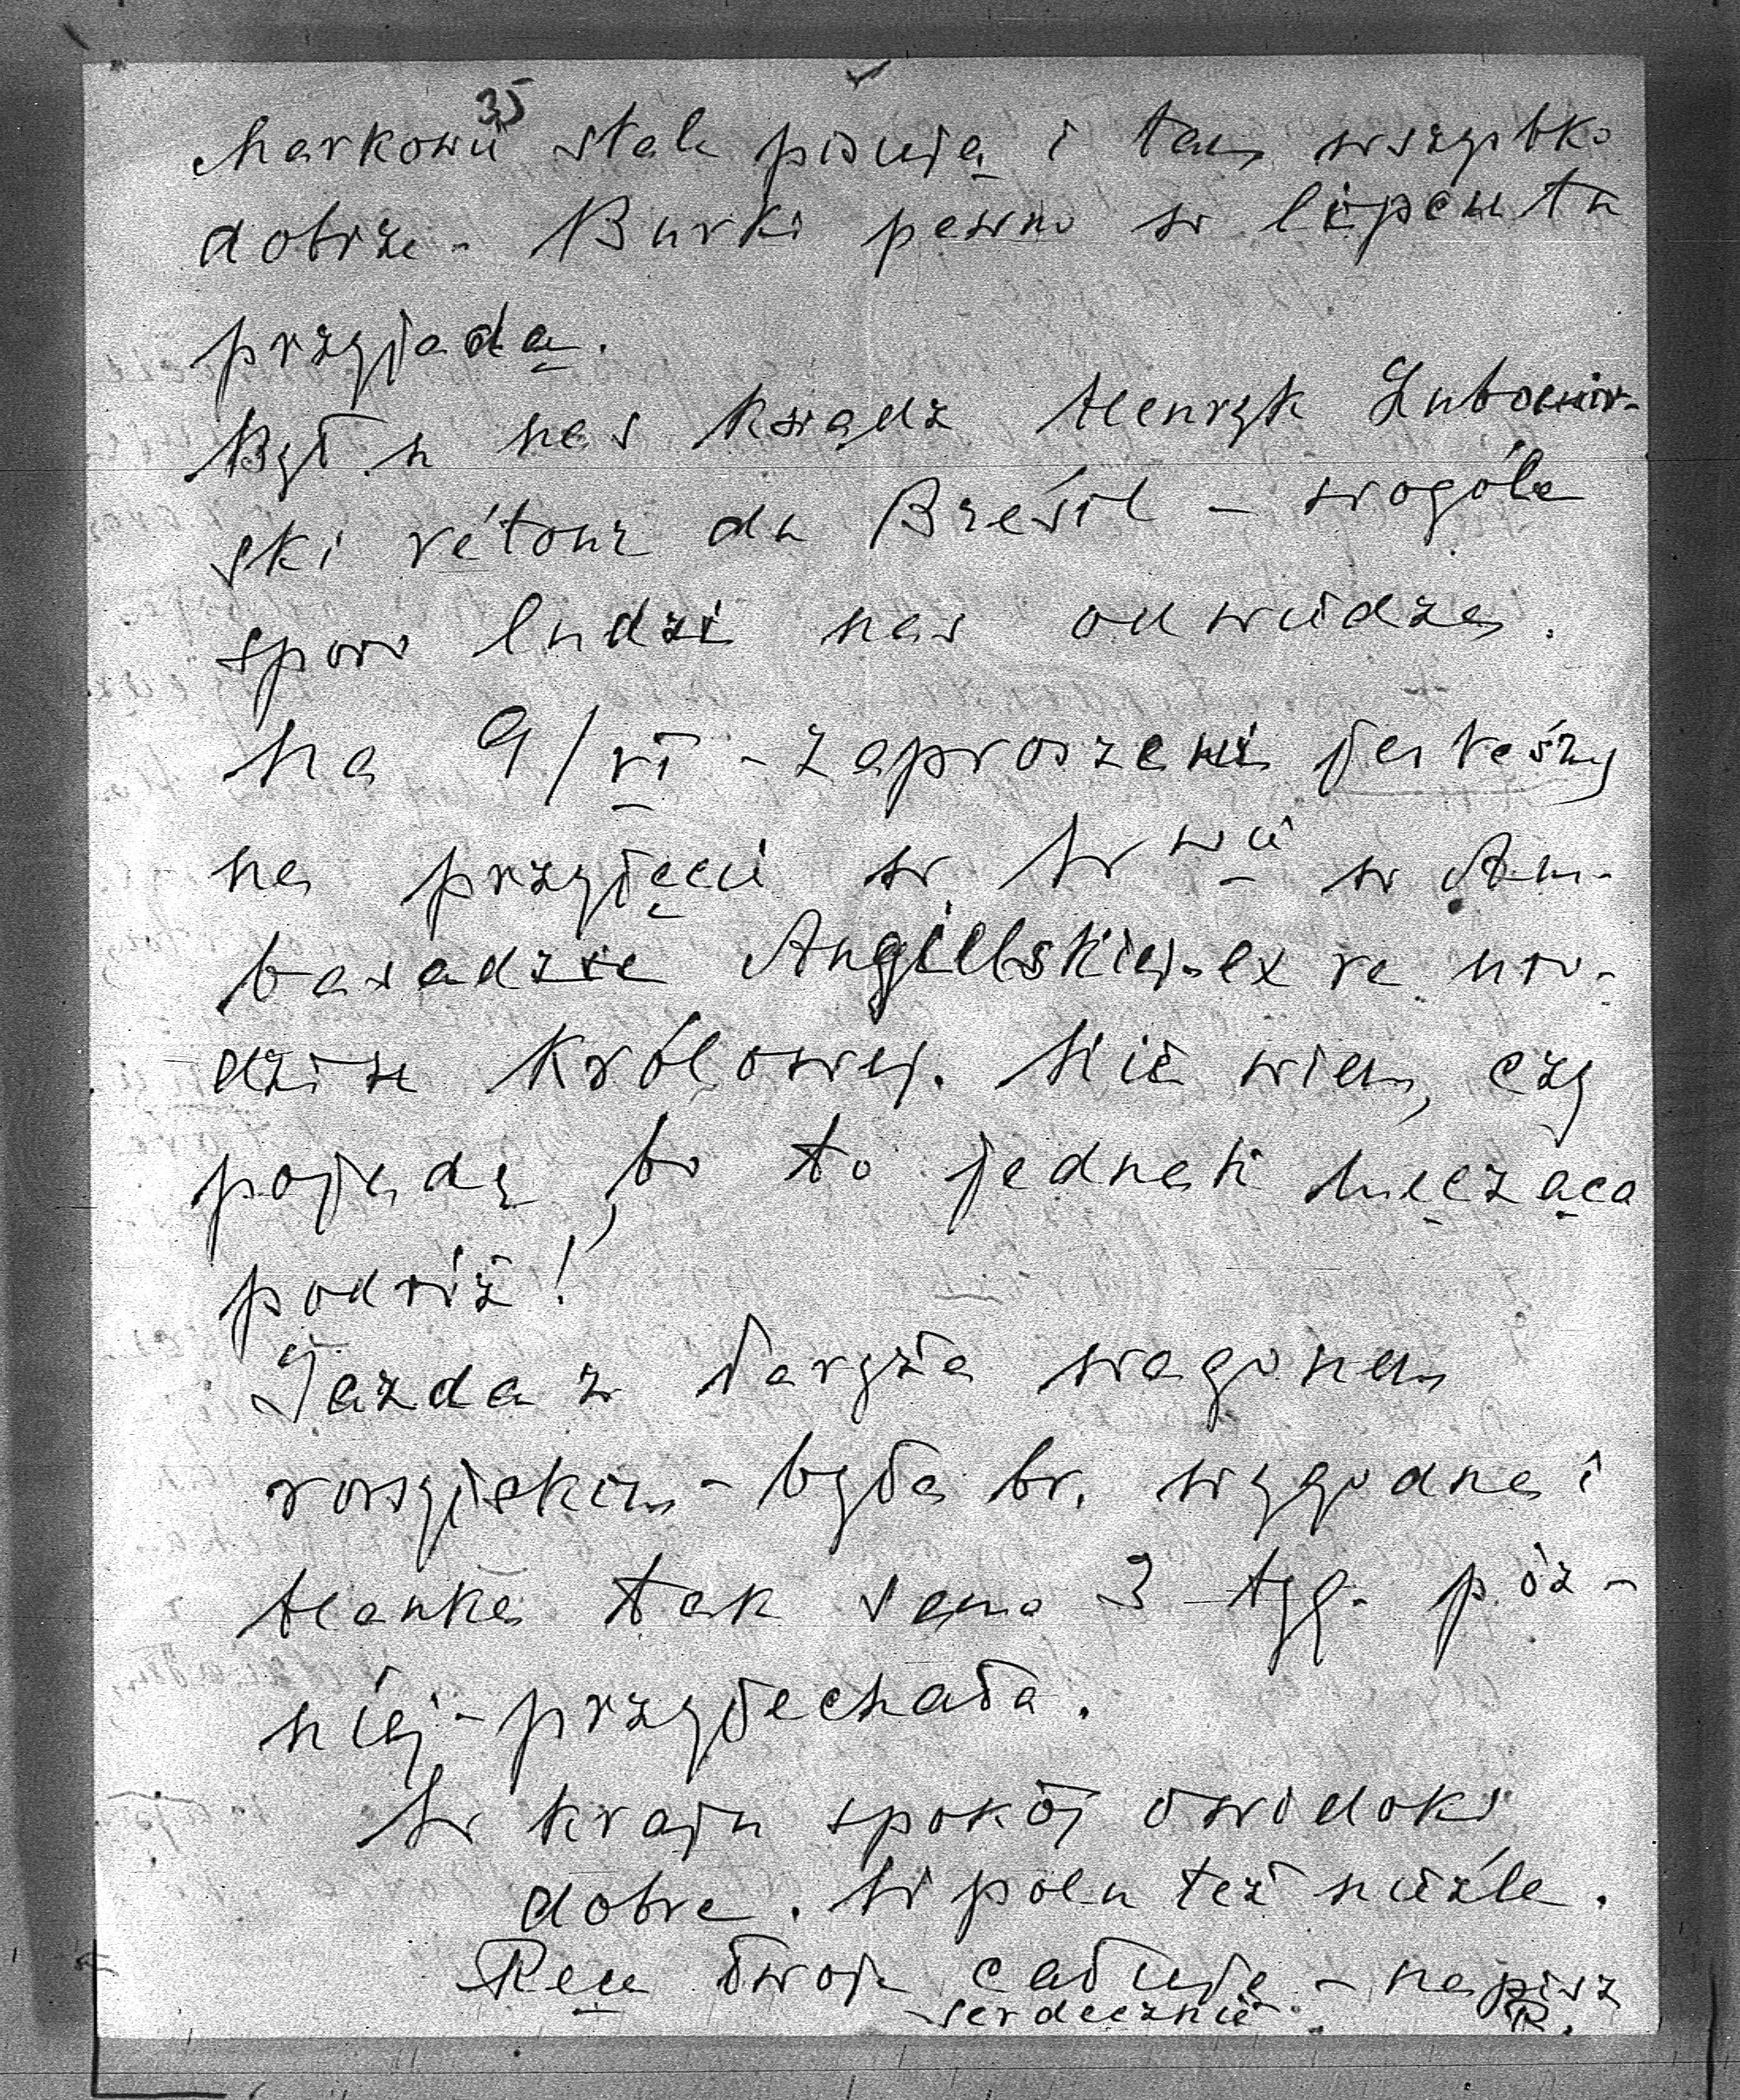 35
Markowie stale pisują i tam wszystko
dobrze - Burki pewno w lipcu tu
przyjadą.
Był u nas Ksiądz Henryk Lubomir-
ski rétour du Brésil - wogóle
sporo ludzi nas odwiedza.
Na 9/VI - zaproszeni jesteśmy
na przyjęcie w W-wie w Am-
basadzie Angielskiej - ex re uro-
dzin Królowej. Nie wiem, czy
pojadę, bo to jednak męcząca
podróż!
Jazda z Paryża wagonem
rosyjskim - była b. wygodna i
Hanka tak samo 3 tyg. póź-
niej - przyjechała.
W kraju spokój widoki
dobre. W polu też nieźle.
Ręce Twoje całuję - napisz
serdecznie. R.